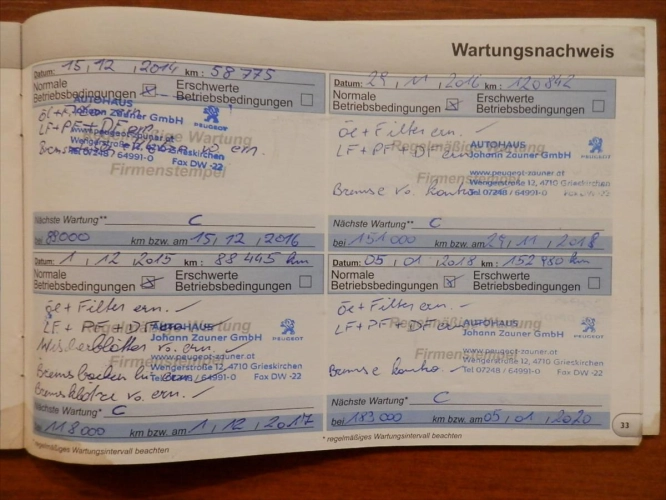 Wartungsnachweis
Datum: 15, 12, 2014 km: 58 775
Normale Betriebsbedingungen ☒ Erschwerte Betriebsbedingungen ☐
Öl + Filter ern.
LF + PF + DF ern.
vo ern.
AUTOHAUS
Johann Zauner GmbH
www.peugeot-zauner.at
Wengerstraße 12, 4710 Grieskirchen
Tel 07248 / 64991-0 Fax DW -22
PEUGEOT
Regelmäßige Wartung
Firmenstempel
Nächste Wartung** C
bei 89000 km bzw. am 15, 12, 2016
Datum: 1, 12, 2015 km: 88 445 km
Normale Betriebsbedingungen ☒ Erschwerte Betriebsbedingungen ☐
Öl + Filter ern.
LF + PF + DF ern.
Wischerblätter vo. ern.
Bremsbacken hi. ern.
Bremsklötze vo. ern.
AUTOHAUS
Johann Zauner GmbH
www.peugeot-zauner.at
Wengerstraße 12, 4710 Grieskirchen
Tel 07248 / 64991-0 Fax DW -22
PEUGEOT
Regelmäßige Wartung
Firmenstempel
Nächste Wartung* C
118000 km bzw. am 1, 12, 2017
regelmäßiges Wartungsintervall beachten
Datum: 29, 11, 2016 km: 120842
Normale Betriebsbedingungen ☒ Erschwerte Betriebsbedingungen ☐
Öl + Filter ern.
LF + PF + DF ern
Bremse vo. kontr.
AUTOHAUS
Johann Zauner GmbH
www.peugeot-zauner.at
Wengerstraße 12, 4710 Grieskirchen
Tel 07248 / 64991-0 Fax DW -22
PEUGEOT
Regelmäßige Wartung
Firmenstempel
Nächste Wartung** C
bei 151000 km bzw. am 29, 11, 2018
Datum: 05, 01, 2018 km: 152 980 km
Normale Betriebsbedingungen ☒ Erschwerte Betriebsbedingungen ☐
Öl + Filter ern.
LF + PF + DF ern
Bremse kontr.
AUTOHAUS
Johann Zauner GmbH
www.peugeot-zauner.at
Wengerstraße 12, 4710 Grieskirchen
Tel 07248 / 64991-0 Fax DW -22
PEUGEOT
Regelmäßige Wartung
Firmenstempel
Nächste Wartung* C
bei 183000 km bzw. am 05, 01, 2020
* regelmäßiges Wartungsintervall beachten
33